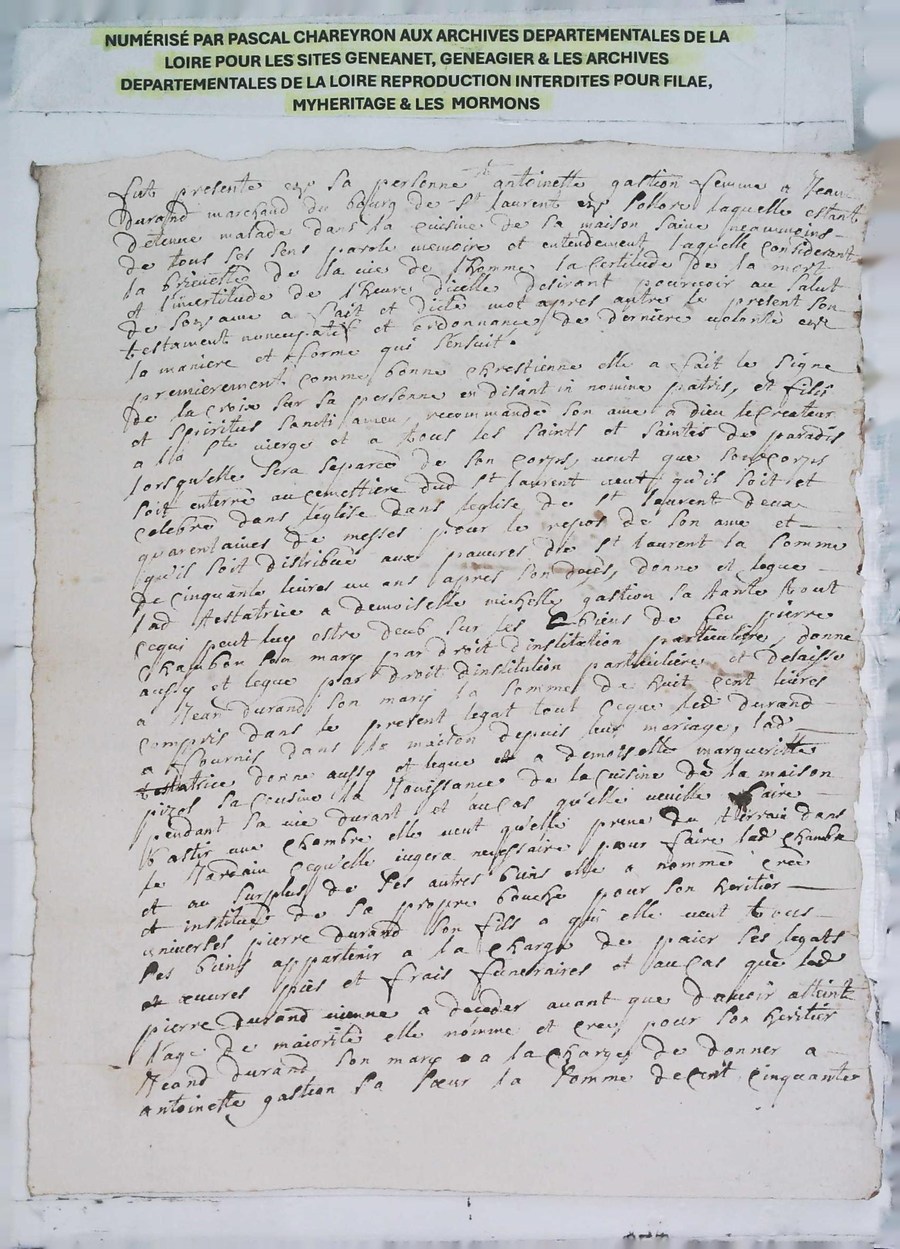 NUMÉRISÉ PAR PASCAL CHAREYRON AUX ARCHIVES DEPARTEMENTALES DE LA
LOIRE POUR LES SITES GENEANET, GENEAGIER & LES ARCHIVES
DEPARTEMENTALES DE LA LOIRE REPRODUCTION INTERDITES POUR FILAE,
MYHERITAGE & LES MORMONS
fut presente en sa personne antoinette gastion femme a Jean
durand marchand du bourg de st laurent laquelle estant
detenue malade dans la cuisine de sa maison saine neanmoins
de tous ses sens parole memoire et entendement laquelle considerant
la brieueté de la vie de lhomme la certitude de la mort
et lincertitude de lheure dicelle desirant pouruoir au salut
de son ame a fait et dicté mot apres autres le present son
testament noncupatif et ordonnance de derniere volonté en
la maniere et forme qui sensuit.
premierement comme bonne chrestienne elle a fait le signe
de la croix sur sa personne en disant in nomine patris, et filii
et spiritus sancti amen, recommande son ame a dieu le createur
a la ste vierge et a tous les saints et saintes de paradis
lorsquelle sera separee de son corps, veut que son corps
soit enterre au cemettiere dud st laurent veut qu'il soit et
celebré dans leglise dans leglise de st laurent deux
quarentaines de messes pour le repos de son ame et
qu'il soit distribué aux pauures de st laurent la somme
de cinquante liures un ans apres son deces, donne et legue
lad testatrice a demoiselle michelle gastion sa tante tout
cequi peut luy estre deub sur les biens de feu pierre
chambon son mary par droit dinstitution particuliere, donne
aussy et legue par droit dinstitution particuliere et delaisse
a Jean durand son mary la somme de huit cent liures
compris dans le present legat tout ceque led durand
a fournis dans la maison depuis leur mariage, lad
testatrice donne aussy et legue a demoiselle margueritte
sa cousine la Jouissance de la cuisine de la maison
pendant sa vie durant et au cas qu'elle veuille faire
bastir une chambre elle veut qu'elle prene du terrain dans
le Jardain cequelle iugera necessaire pour faire lad chambre
et au surplus de ses autres biens elle a nommé creé
et institué de sa propre bouche pour son heritier
universel pierre durand son fils a qui elle veut tous
ses biens appartenir a la charge de paier ses legats
et œuures pies et frais funeraires et au cas que led
pierre durand vienne a deceder auant que dauoir atteint
lage de maiorité elle nomme et creé pour son heritier
Jeand durand son mary a la charge de donner a
antoinette gastion sa sœur la somme de cent cinquante